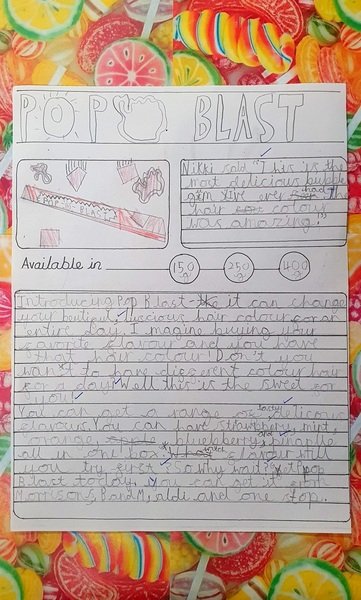 POP BLAST
Nikki said "This is the
most delicious bubble
gum I've ever had the
hair colour
was amazing!"
BLAST!
Available in 150g 250g 400g
Introducing Pop Blast it can change
your luscious hair colour for an
entire day. Imagine buying your
favorite flavour and you have
that hair colour! Don't you
want to have different colour hair
for a day? Well this is the sweet for
you!
You can get a range of tasty delicious
flavours. You can have strawberry, mint,
orange, blueberry, and apple
all in one box. flavour will
you try first? So why wait? get pop
Blast today. You can get it from
Morrisons, BandM, aldi and one stop.